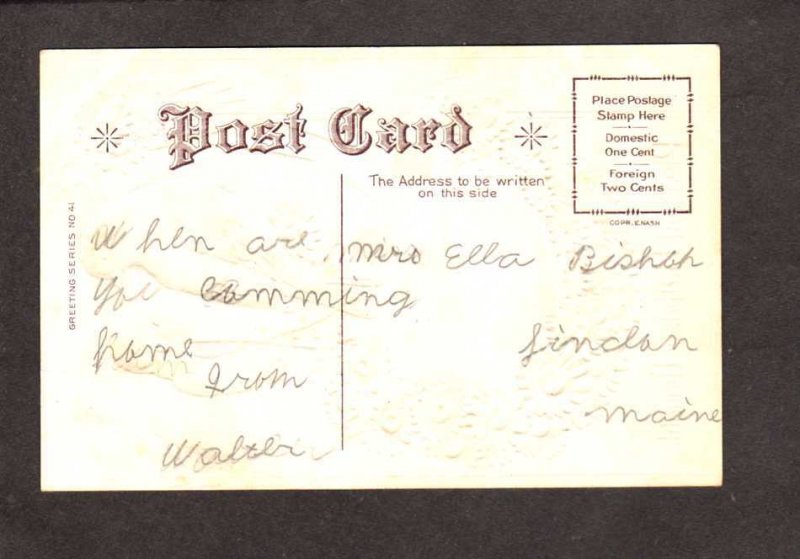 Post Card
Place Postage
Stamp Here
Domestic
One Cent
Foreign
Two Cents
COPR. E. NASH
The Address to be written
on this side
GREETING SERIES NO 41
When are
you comming
home
From
Walter
Mrs Ella Bishop
Maine